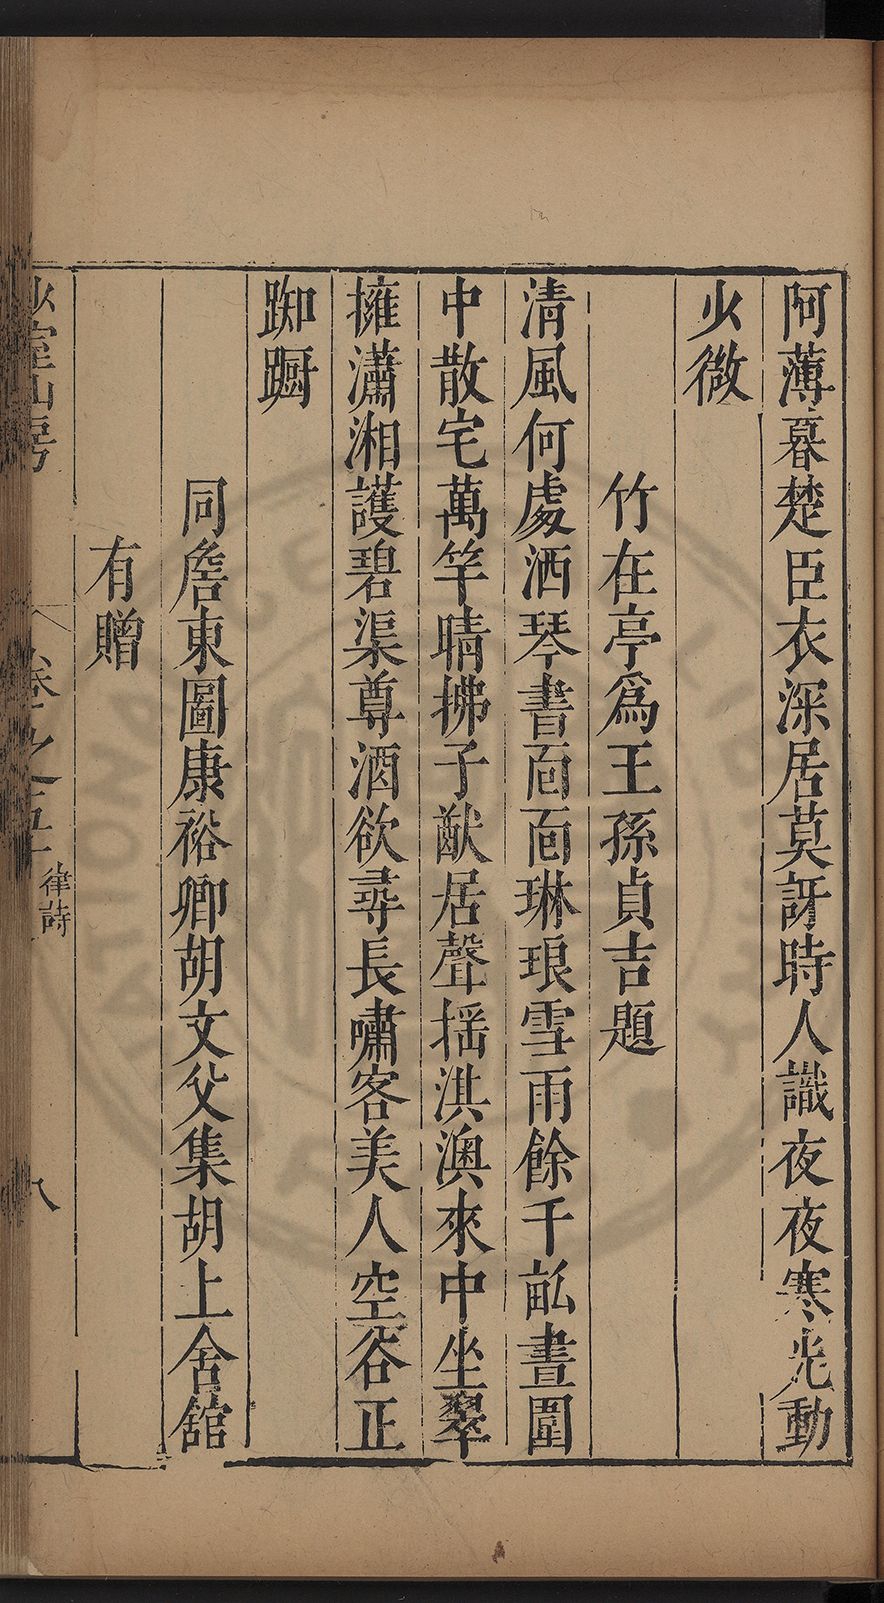 阿薄暮楚臣衣深居莫訝時人識夜夜寒光動
少微
竹在亭爲王孫貞吉題
清風何處洒琴書面面琳琅雪雨餘千畝晝圍
中散宅萬竿晴拂子猷居聲揺淇澳來中坐翠
擁瀟湘護碧渠尊酒欲尋長嘯客美人空谷正
踟蹰
同詹東圖康裕卿胡文父集胡上舍舘
有贈
少室山房
卷之五十
律詩
八